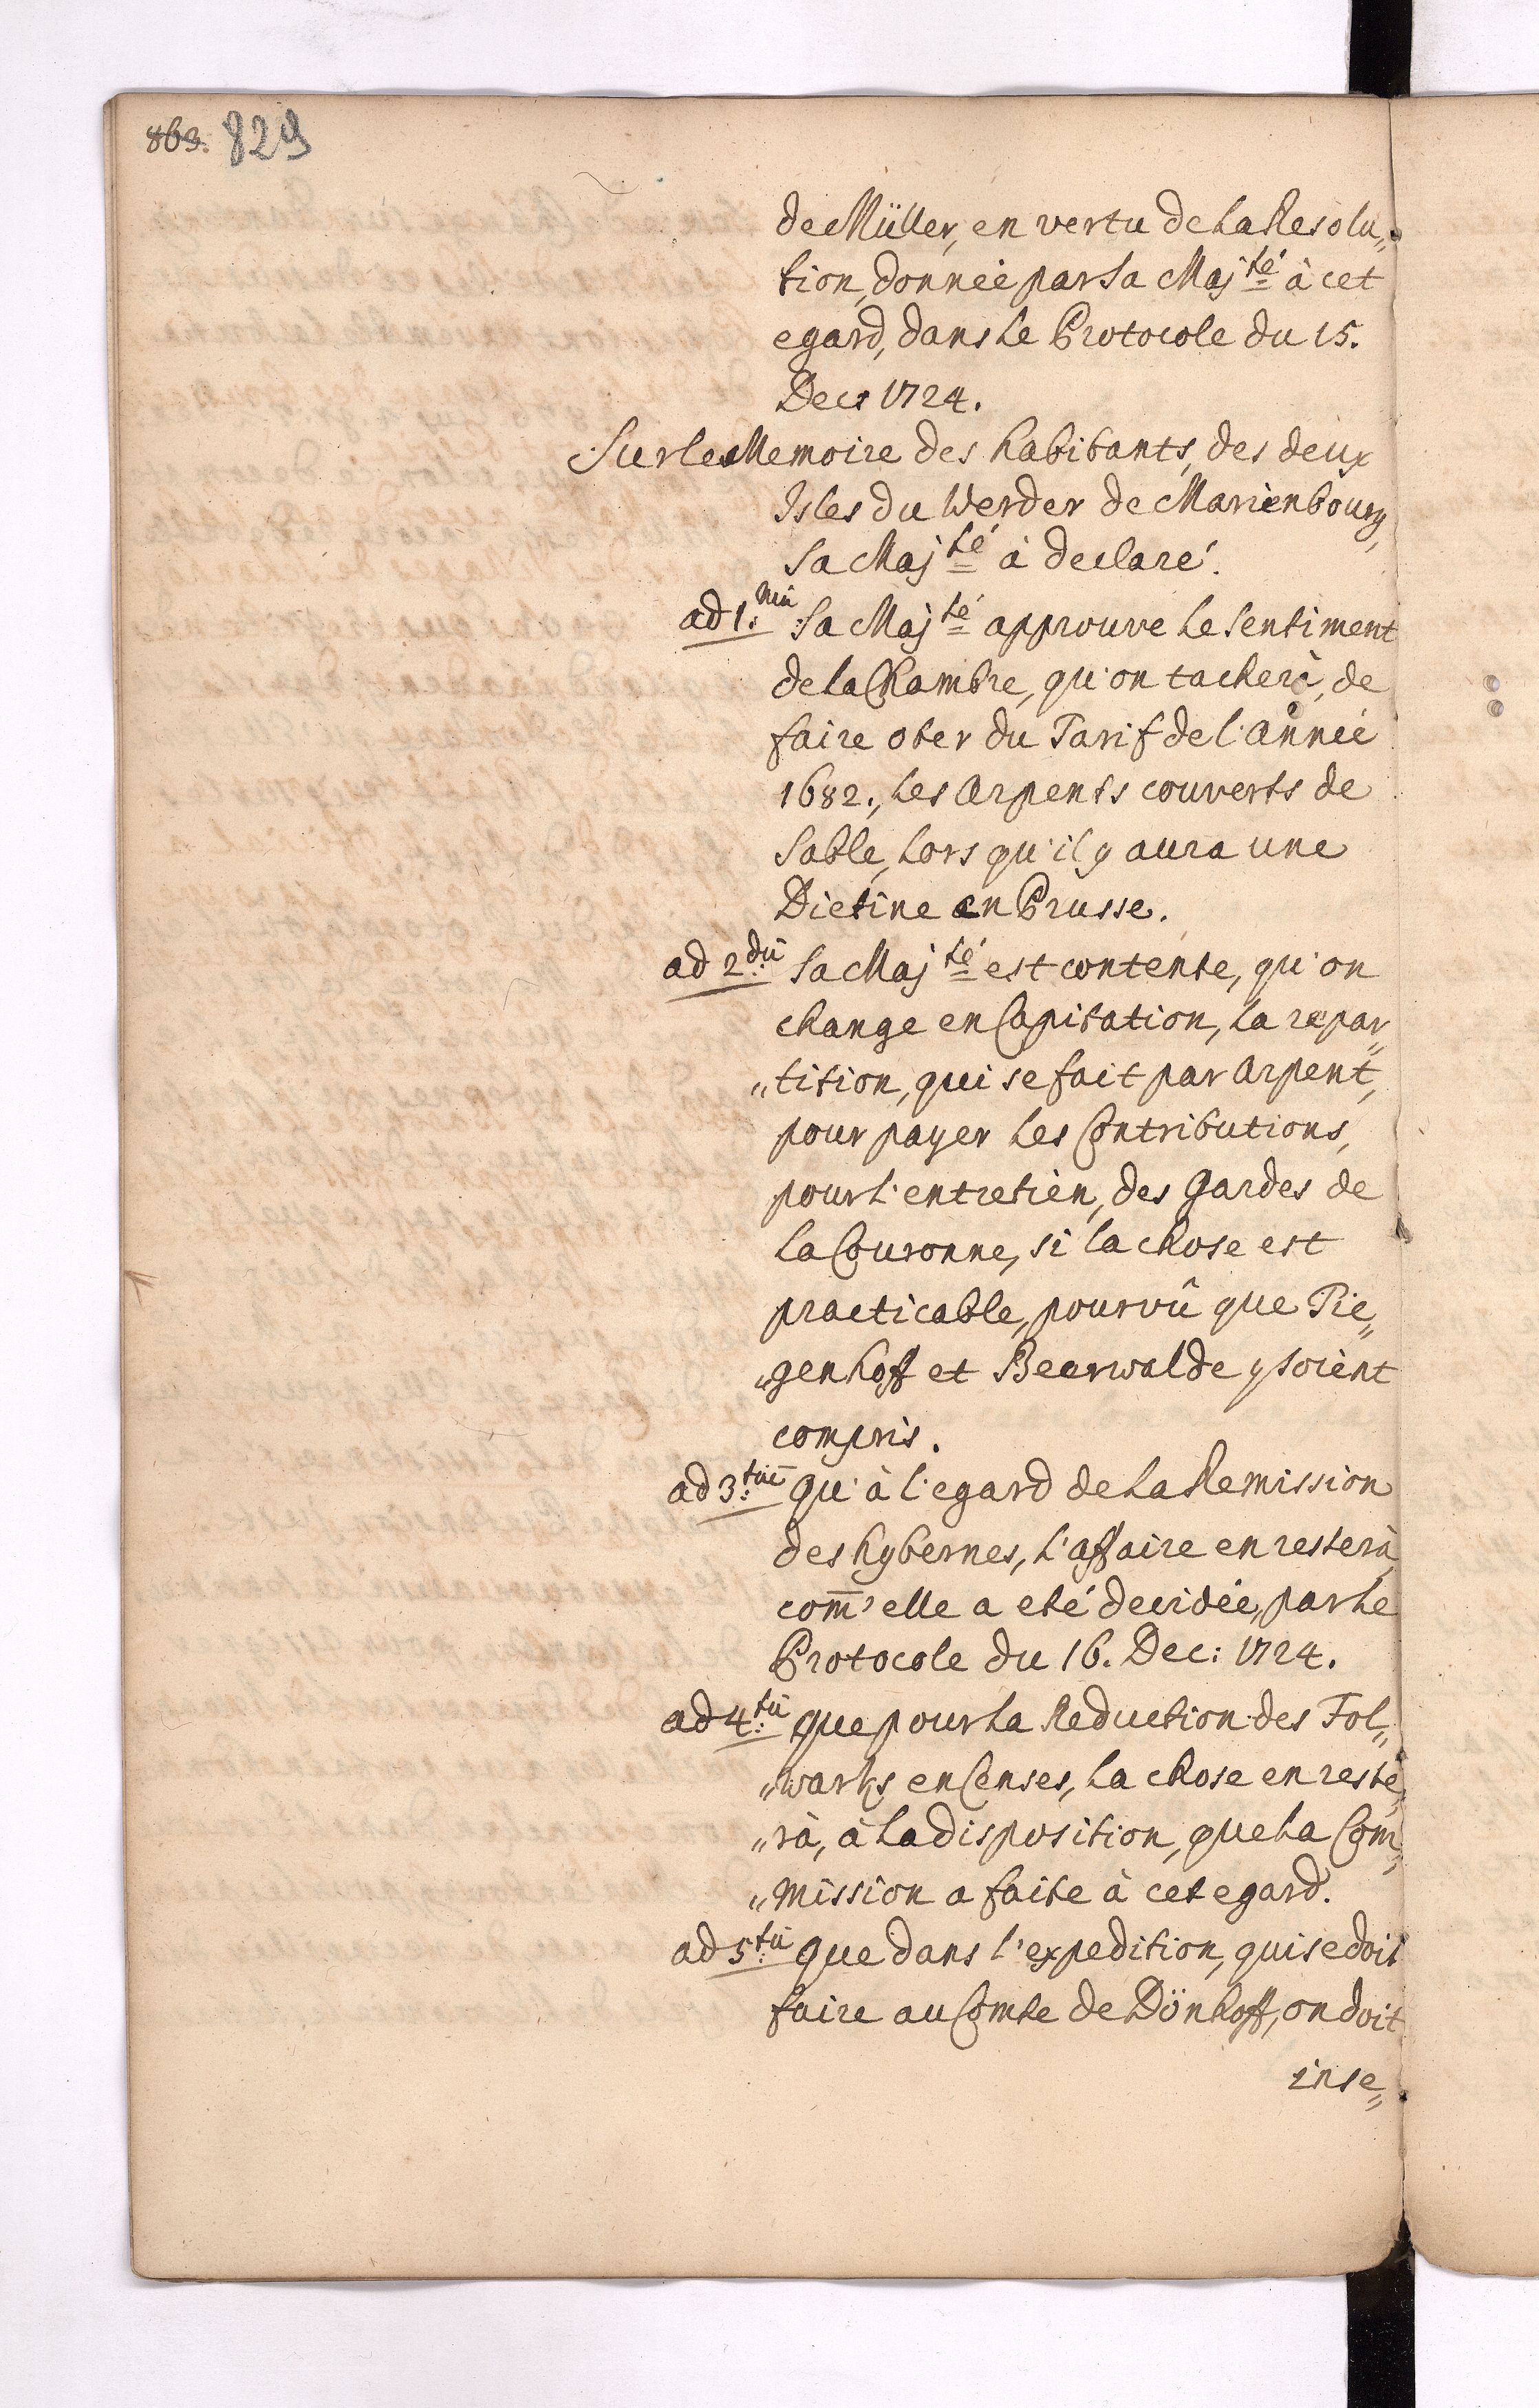 863. 829
de Müller, en vertu de la Resolu„
tion, donneé par Sa Maj.té à cet
egard, dans le Protocole du 15.
Decr 1724.
Sur le Memoire des habitants, des deux
Isles du Werder de Marienbourg,
Sa Maj.té à declaré.
ad 1.mũ Sa Maj.té approuve le sentiment
de la Chambre, qu'on tacherà, de
faire oter du Tarif de l'anneé
1682., les Arpents couverts de
Sable, lors qu'il y aura une
Dietine en Prusse.
ad 2.dũ Sa Maj.té est contente, qu'on
change en Capitation, la repar„
„tition, qui se fait par Arpent,
pour payer les Contributions,
pour l'entretien, des Gardes de
la Couronne, si la chose est
practicable, pourvû que Tie„
„genhoff et Beerwalde y soient
compris.
ad 3.tiũ qu'à l'egard de la Remission
des hybernes, l'affaire en resterà,
com̄'elle a eté decideé, par le
Protocole du 16. Dec: 1724.
ad 4.tũ que pour la Reduction des Fol„
„warks en Censes, la chose en reste„
„rà, à la disposition, que la Com„
„mission a faite à cet egard.
ad 5.tũ que dans l'expedition, qui se doit
faire au Comte de Dönhoff, on doit
inse„